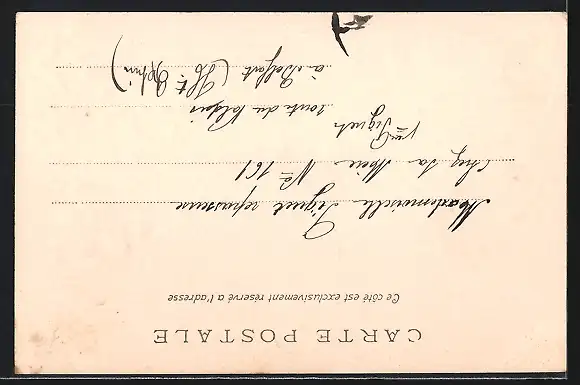 CARTE POSTALE
Ce côté est exclusivement réservé a l'adresse
Mademoiselle Piquet repasseuse
chez sa Mère No 161
Vve Piquet
route du
à Belfort (Ht Rhin)